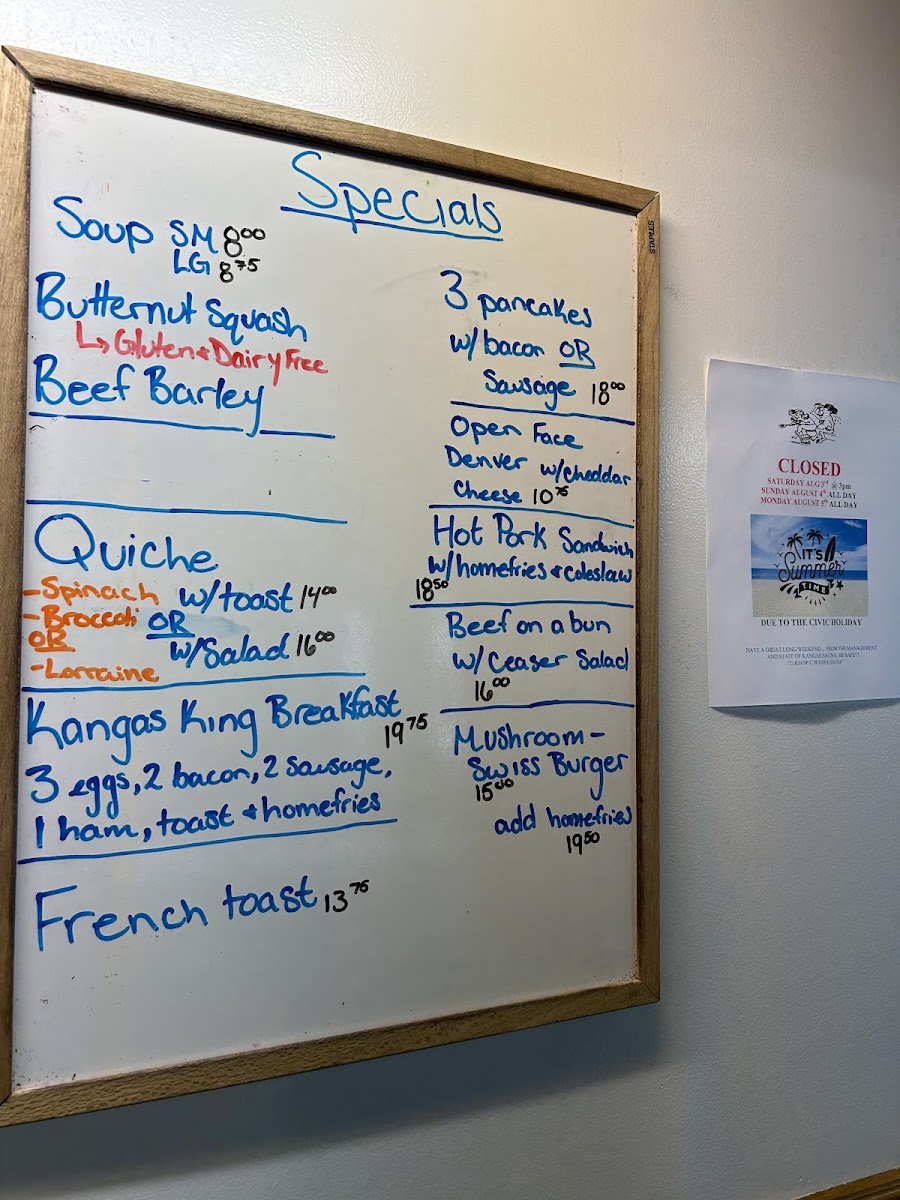 Specials
Soup SM 8.00
LG 8.75
Butternut Squash
↳ Gluten & Dairy Free
Beef Barley
Quiche
- Spinach
- Broccoli
OR
- Lorraine
w/toast 14.00
OR
w/Salad 16.00
Kangas King Breakfast
19.75
3 eggs, 2 bacon, 2 sausage,
1 ham, toast & homefries
French toast 13.75
3 pancakes
w/bacon OR
Sausage 18.00
Open Face
Denver w/cheddar
Cheese 10.75
Hot Pork Sandwich
w/homefries & coleslaw
18.50
Beef on a bun
w/ Ceaser Salad
16.00
Mushroom-
Swiss Burger
15.00
add homefries
19.50
STAPLES
CLOSED
SATURDAY AUG 3rd @ 3pm
SUNDAY AUGUST 4th ALL DAY
MONDAY AUGUST 5th ALL DAY
IT'S
Summer
TIME
DUE TO THE CIVIC HOLIDAY
HAVE A GREAT LONG WEEKEND... FROM THE MANAGEMENT
AND STAFF OF KANGAS SAUNA. BE SAFE!!
"U KNOW U WANNA SAUNA"